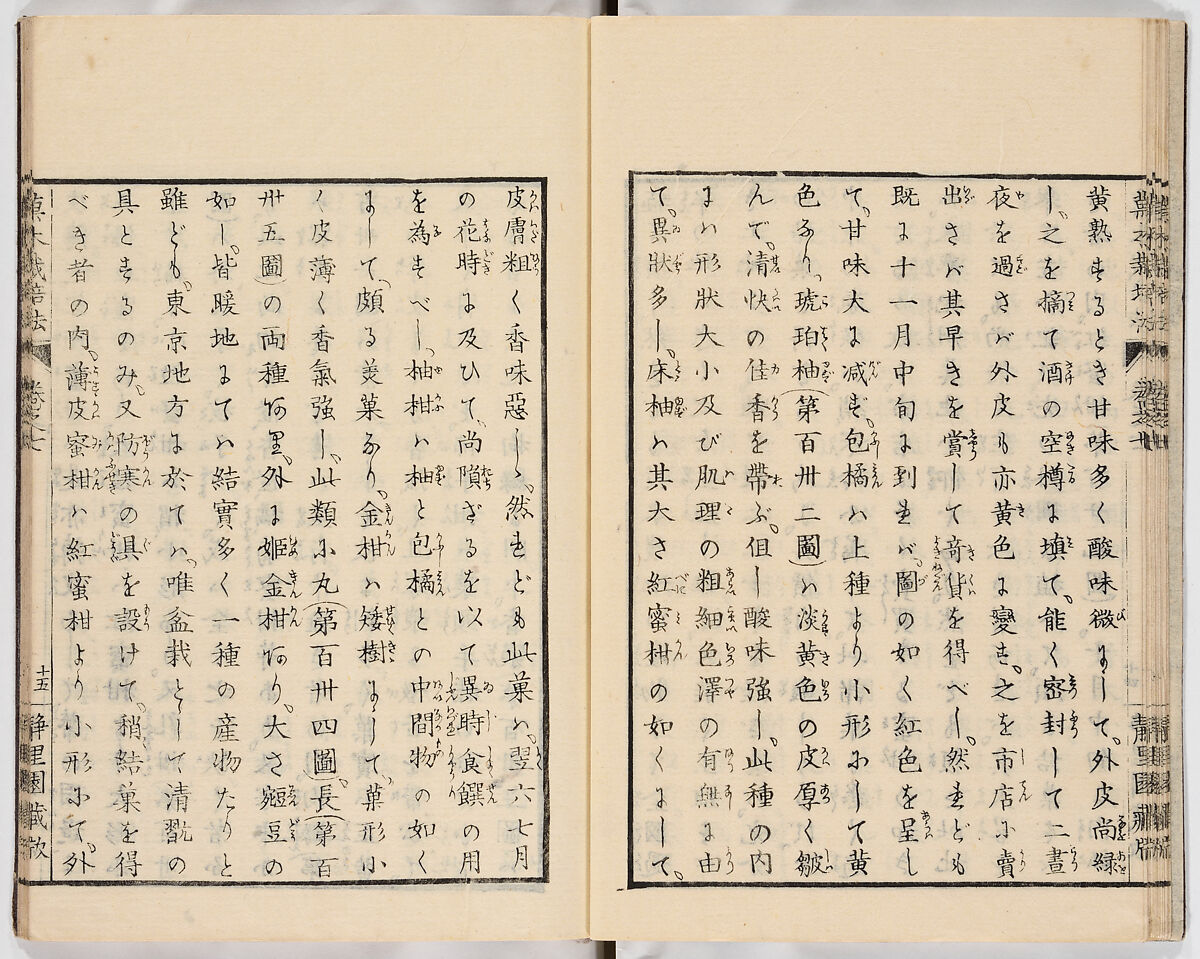 黄熟するとき甘味多く酸味微にして、外皮尚緑
し、之を摘て酒の空樽に填て、能く密封して二晝
夜を過さバ外皮も亦黄色に變ず、之を市店に賣
出さバ其早きを賞して竒貨を得べし、然れども
既に十一月中旬に到れバ、圖の如く紅色を呈し
て、甘味大に减ず、包橘ハ上種より小形にして黄
色なり、琥珀柚(第百卅二圖)ハ淡黄色の皮厚く皺
んで、清快の佳香を帶ぶ、但し酸味強し、此種の内
にハ形狀大小及び肌理の粗細色澤の有無に由
て、異狀多し、床柚ハ其大さ紅蜜柑の如くにして、
皮膚粗く香味惡しゝ、然れども此菓ハ、翌六七月
の花時に及ひて、尚隕ざるを以て異時食饌の用
を為すべし、柚柑ハ柚と包橘との中間物の如く
にして、頗る美菓なり、金柑ハ矮樹にして、菓形小
く皮薄く香氣強し、此類に丸(第百卅四圖)、長(第百
卅五圖)の両種あり、外に姫金柑あり、大さ豌豆の
如し、皆暖地にてハ結實多く一種の産物たりと
雖ども、東京地方に於てハ、唯盆栽として清翫の
具とするのみ、又防寒の具を設けて、稍結菓を得
べき者の内、薄皮蜜柑ハ紅蜜柑より小形にて、外
菓木栽培法
卷之七
十五
静里園藏板